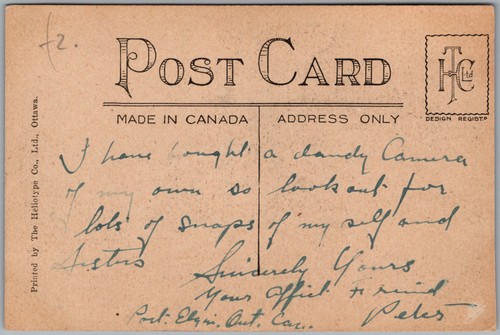 £2.
POST CARD
MADE IN CANADA
ADDRESS ONLY
HTC Ltd
DESIGN REGIST'D
Printed by The Heliotype Co., Ltd., Ottawa.
I have bought a dandy Camera
of my own so look out for
lots of snaps of my self and
Sisters
Sincerely Yours
Your Affect Friend
Peter
Port. Elgin. Ont. Can.